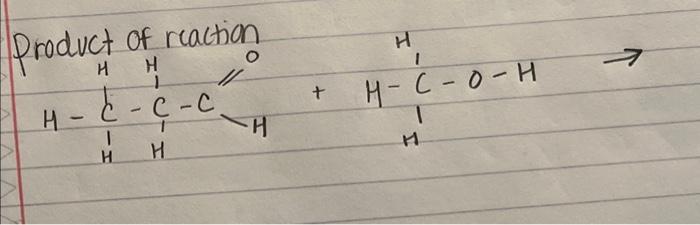 Product of reaction
H H H
O
H - C - C - C + H - C - O - H →
H
H H H